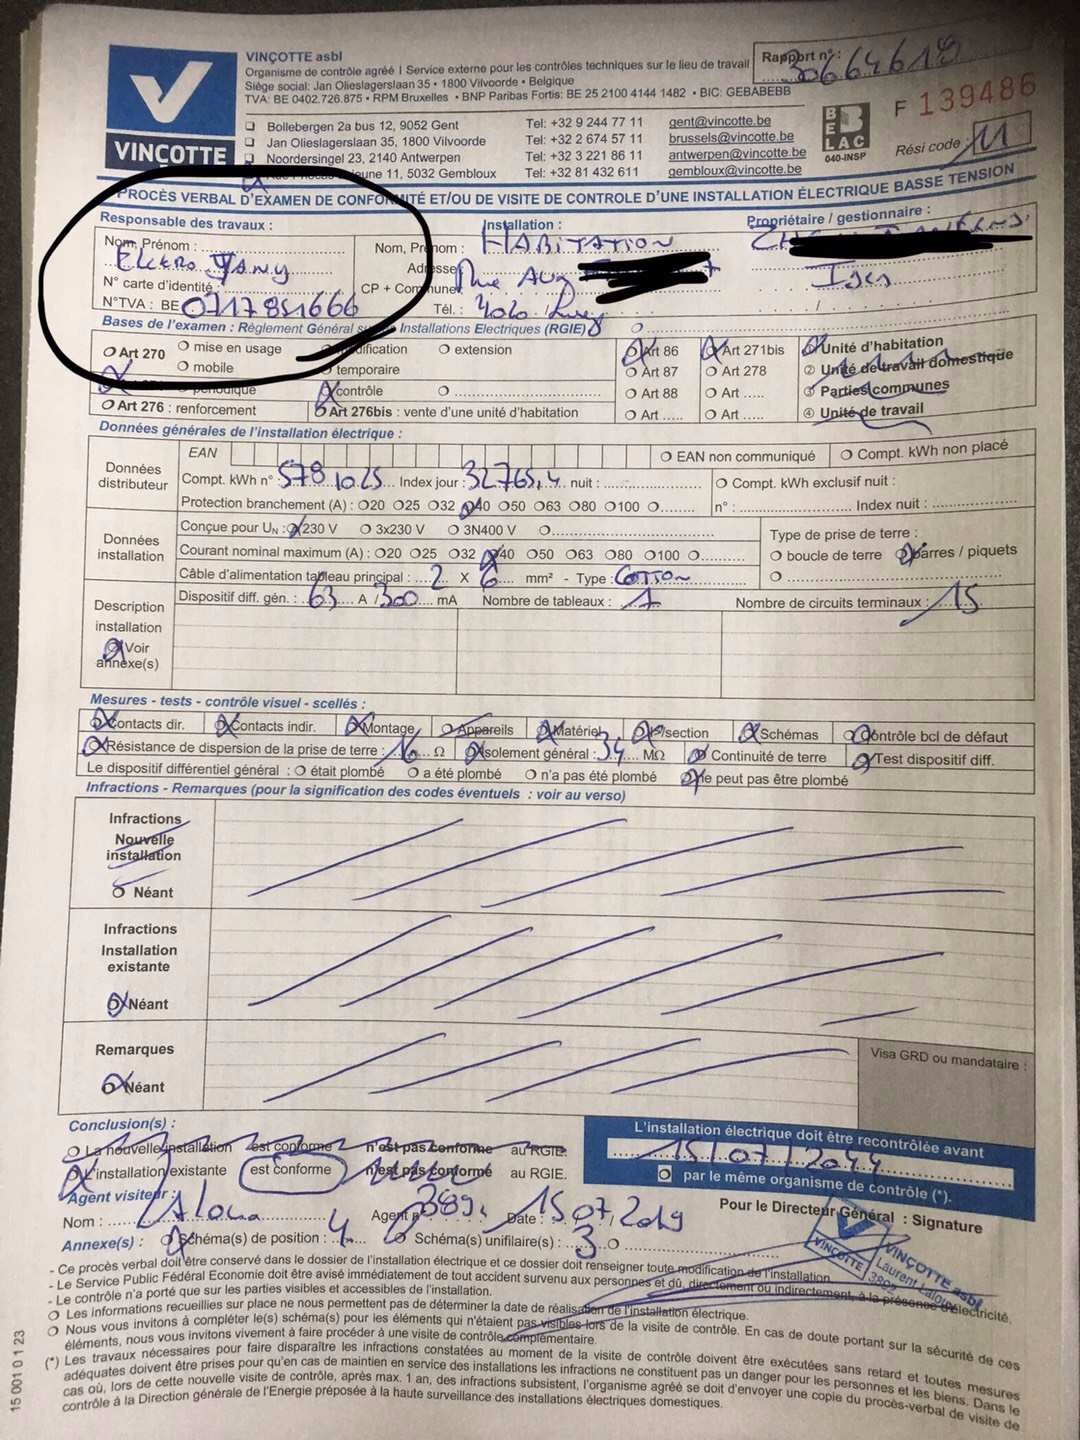 VINÇOTTE
VINÇOTTE asbl
Organisme de contrôle agréé I Service externe pour les contrôles techniques sur le lieu de travail
Siège social: Jan Olieslagerslaan 35 • 1800 Vilvoorde • Belgique
TVA: BE 0402.726.875 • RPM Bruxelles • BNP Paribas Fortis: BE 25 2100 4144 1482 • BIC: GEBABEBB
Rapport n° : 30664618
F 139486
Bollebergen 2a bus 12, 9052 Gent Tel: +32 9 244 77 11 gent@vincotte.be
Jan Olieslagerslaan 35, 1800 Vilvoorde Tel: +32 2 674 57 11 brussels@vincotte.be
Noordersingel 23, 2140 Antwerpen Tel: +32 3 221 86 11 antwerpen@vincotte.be
jeune 11, 5032 Gembloux Tel: +32 81 432 611 gembloux@vincotte.be
BELAC
040-INSP
Rési code : 11
PROCÈS VERBAL D'EXAMEN DE CONFORMITÉ ET/OU DE VISITE DE CONTROLE D'UNE INSTALLATION ÉLECTRIQUE BASSE TENSION
Responsable des travaux : Installation : Propriétaire / gestionnaire :
Nom, Prénom : Nom, Prénom : HABITATION
Elektro Jany Adresse Rue Aug
N° carte d'identité CP + Commune
N°TVA : BE 0717851666 Tél. : 4040
Bases de l'examen : Règlement Général Installations Electriques (RGIE)
Art 270 mise en usage modification extension Art 86 Art 271bis Unité d'habitation
mobile temporaire Art 87 Art 278 ② Unité de travail domestique
periodique contrôle Art 88 Art ..... ③ Parties communes
Art 276 : renforcement Art 276bis : vente d'une unité d'habitation Art ..... Art ..... ④ Unité de travail
Données générales de l'installation électrique :
Données distributeur
EAN EAN non communiqué Compt. kWh non placé
Compt. kWh n° : 5781025 Index jour : 32765,4 nuit : Compt. kWh exclusif nuit :
Protection branchement (A) : 20 25 32 40 50 63 80 100 n° : Index nuit :
Données installation
Conçue pour UN : 230 V 3x230 V 3N400 V Type de prise de terre :
Courant nominal maximum (A) : 20 25 32 40 50 63 80 100 boucle de terre barres / piquets
Câble d'alimentation tableau principal : 2 X 6 mm² - Type : COTTON
Description installation
Voir annexe(s)
Dispositif diff. gén. : 63 A / 300 mA Nombre de tableaux : 1 Nombre de circuits terminaux : 15
Mesures - tests - contrôle visuel - scellés :
Contacts dir. Contacts indir. Montage Appareils Matériel I/section Schémas Contrôle bcl de défaut
Résistance de dispersion de la prise de terre : 16 Ω Isolement général : 34 MΩ Continuité de terre Test dispositif diff.
Le dispositif différentiel général : était plombé a été plombé n'a pas été plombé Ne peut pas être plombé
Infractions - Remarques (pour la signification des codes éventuels : voir au verso)
Infractions
Nouvelle
installation
Néant
Infractions
Installation
existante
Néant
Remarques
Néant
Visa GRD ou mandataire :
Conclusion(s) :
La nouvelle installation est conforme n'est pas conforme au RGIE.
L'installation existante est conforme n'est pas conforme au RGIE.
L'installation électrique doit être recontrôlée avant
15/07/2044
par le même organisme de contrôle (*).
Agent visiteur :
Nom : Agent n° Date : 15/07/2019
Pour le Directeur Général : Signature
VINÇOTTE
VINÇOTTE asbl
Annexe(s) : Schéma(s) de position : 4 Schéma(s) unifilaire(s) : 3
- Ce procès verbal doit être conservé dans le dossier de l'installation électrique et ce dossier doit renseigner toute modification de l'installation.
- Le Service Public Fédéral Economie doit être avisé immédiatement de tout accident survenu aux personnes et dû, directement ou indirectement, à la présence d'électricité.
- Le contrôle n'a porté que sur les parties visibles et accessibles de l'installation.
Les informations recueillies sur place ne nous permettent pas de déterminer la date de réalisation de l'installation électrique.
Nous vous invitons à compléter le(s) schéma(s) pour les éléments qui n'étaient pas visibles lors de la visite de contrôle. En cas de doute portant sur la sécurité de ces
éléments, nous vous invitons vivement à faire procéder à une visite de contrôle complémentaire.
(*) Les travaux nécessaires pour faire disparaître les infractions constatées au moment de la visite de contrôle doivent être exécutées sans retard et toutes mesures
adéquates doivent être prises pour qu'en cas de maintien en service des installations les infractions ne constituent pas un danger pour les personnes et les biens. Dans le
cas où, lors de cette nouvelle visite de contrôle, après max. 1 an, des infractions subsistent, l'organisme agréé se doit d'envoyer une copie du procès-verbal de visite de
contrôle à la Direction générale de l'Energie préposée à la haute surveillance des installations électriques domestiques.
15 001 0 1 23